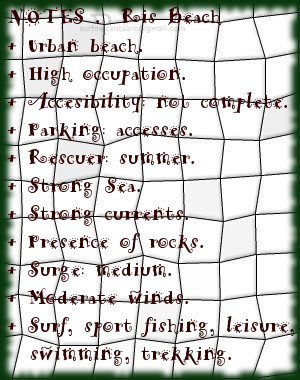 NOTES . Ris Beach
+ Urban beach.
+ High occupation.
+ Accesibility: not complete.
+ Parking: accesses.
+ Rescuer: summer.
+ Strong Sea.
+ Strong currents.
+ Presence of rocks.
+ Surge: medium.
+ Moderate winds.
+ Surf, sport fishing, leisure,
swimming, trekking.